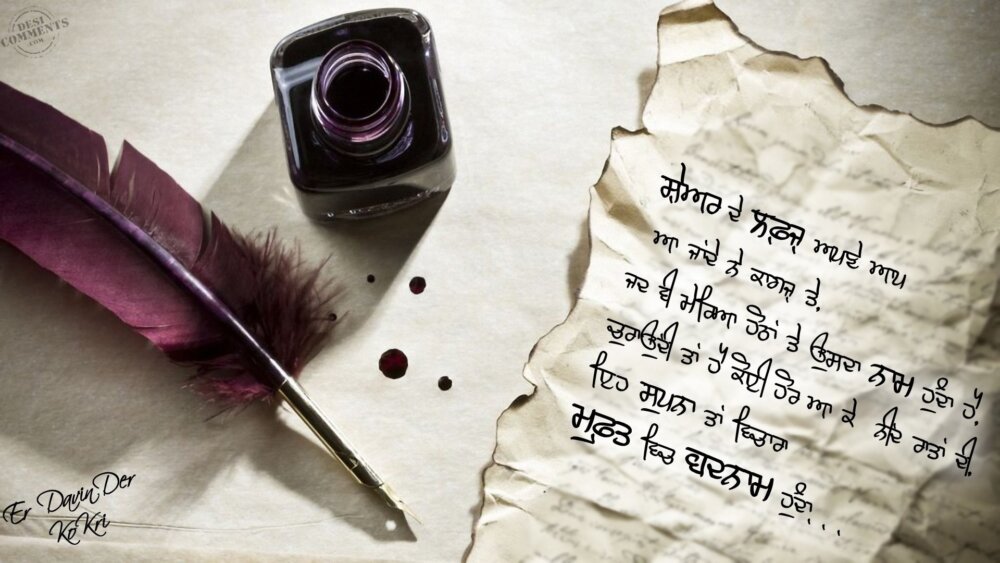 DESI
COMMENTS
.COM
ਸ਼ੇਅਰ ਦੇ ਲਫ਼ਜ਼ ਆਪਣੇ ਆਪ
ਆ ਜਾਂਦੇ ਨੇ ਕਾਗਜ਼ ਤੇ,
ਜਦ ਵੀ ਮੇਰਿਆ ਹੋਠਾਂ ਤੇ ਉਸਦਾ ਨਾਮ ਹੁੰਦਾ ਹੈ,
ਚੁਰਾਉਂਦੀ ਤਾਂ ਹੈ ਕੋਈ ਹੋਰ ਆ ਕੇ ਨੀਂਦ ਰਾਤਾਂ ਦੀ,
ਇਹ ਸੁਪਨਾ ਤਾਂ ਵਿਚਾਰਾ
ਮੁਫਤ ਵਿਚ ਬਦਨਾਮ ਹੁੰਦਾ...
Er DavinDer
KoKri